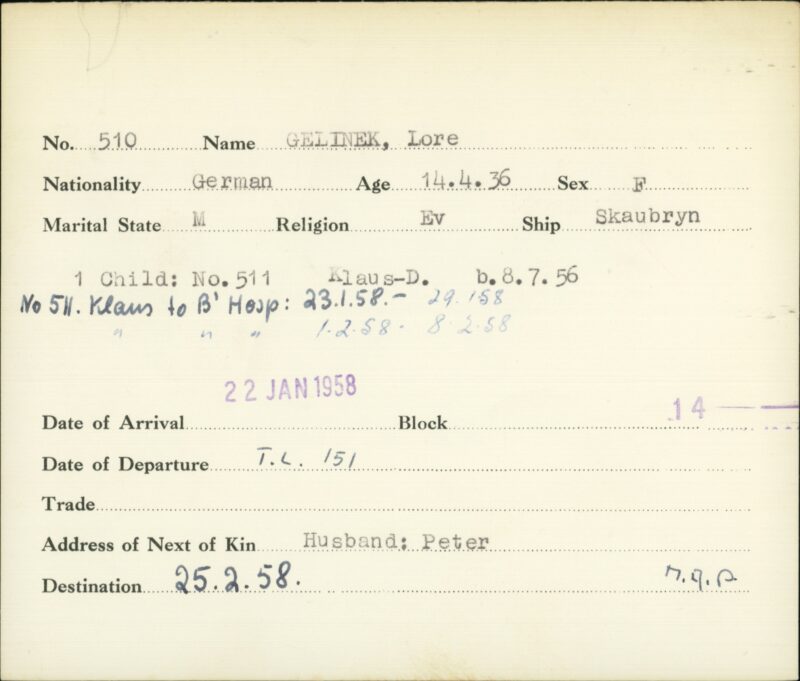 No. 510 Name GELINEK, Lore
Nationality German Age 14.4.36 Sex F
Marital State M Religion Ev Ship Skaubryn
1 Child: No.511 Klaus-D. b.8.7.56
No 511. Klaus to B' Hosp: 23.1.58.- 29.1.58
" " " 1.2.58- 8.2.58
22 JAN 1958
Date of Arrival Block 14
Date of Departure T.L. 151
Trade
Address of Next of Kin Husband: Peter
Destination 25.2.58.